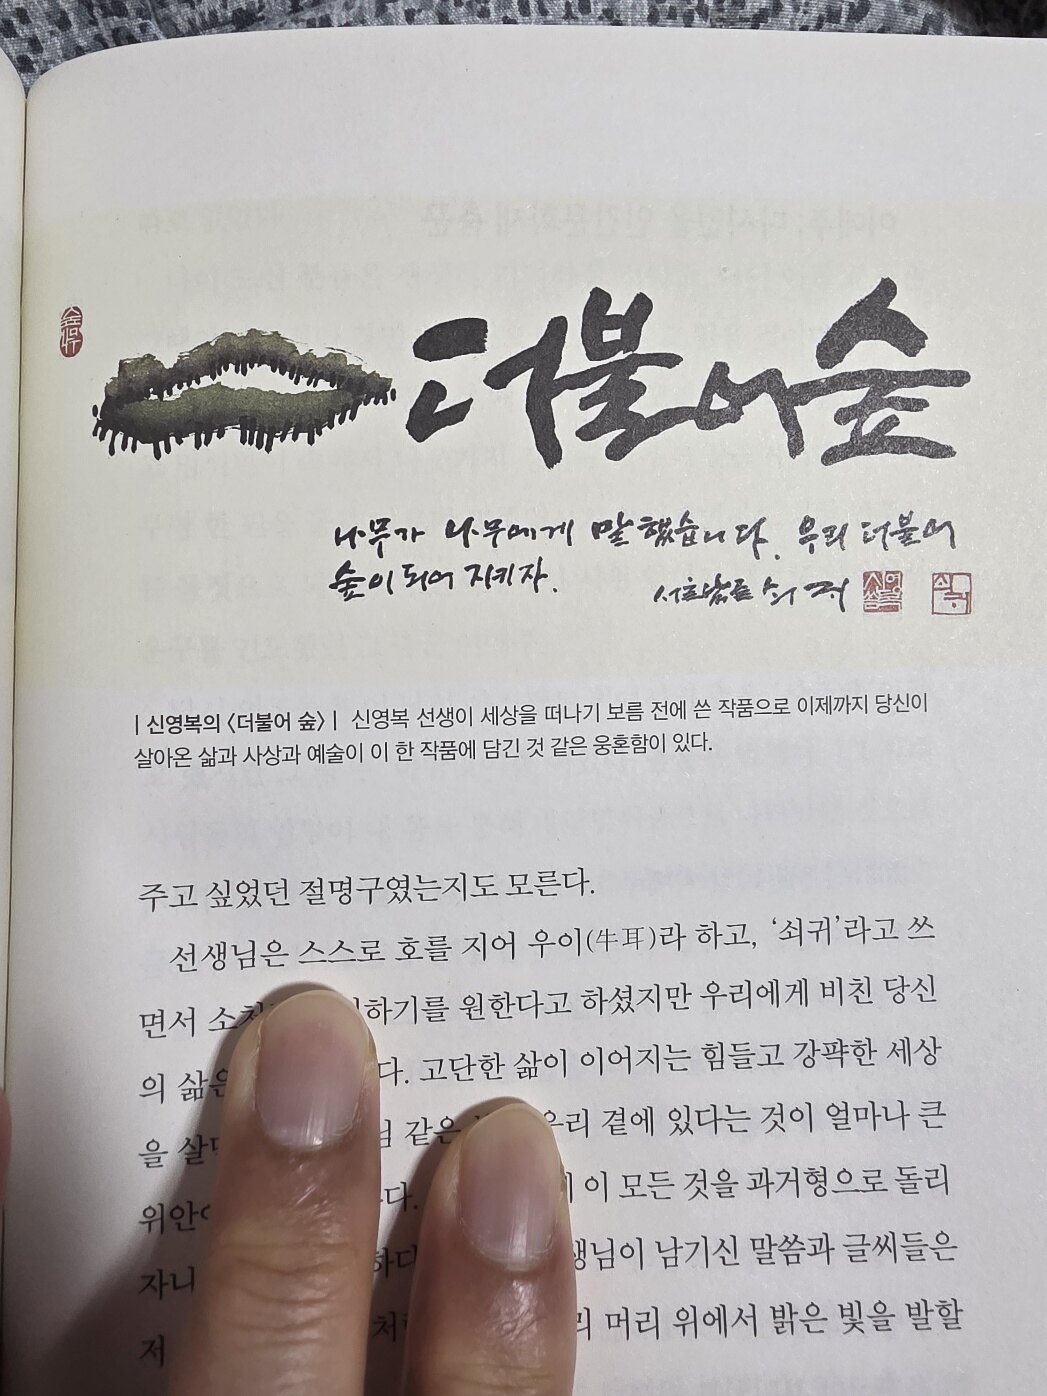 더불어숲
나무가 나무에게 말했습니다. 우리 더불어
숲이 되어 지키자.
쇠귀
| 신영복의 〈더불어 숲〉 | 신영복 선생이 세상을 떠나기 보름 전에 쓴 작품으로 이제까지 당신이
살아온 삶과 사상과 예술이 이 한 작품에 담긴 것 같은 웅혼함이 있다.
주고 싶었던 절명구였는지도 모른다.
선생님은 스스로 호를 지어 우이(牛耳)라 하고, ‘쇠귀’라고 쓰
면서 하기를 원한다고 하셨지만 우리에게 비친 당신
의 삶은 다. 고단한 삶이 이어지는 힘들고 강퍅한 세상
을 같은 우리 곁에 있다는 것이 얼마나 큰
이 모든 것을 과거형으로 돌리
자니 남기신 말씀과 글씨들은
저 머리 위에서 밝은 빛을 발할